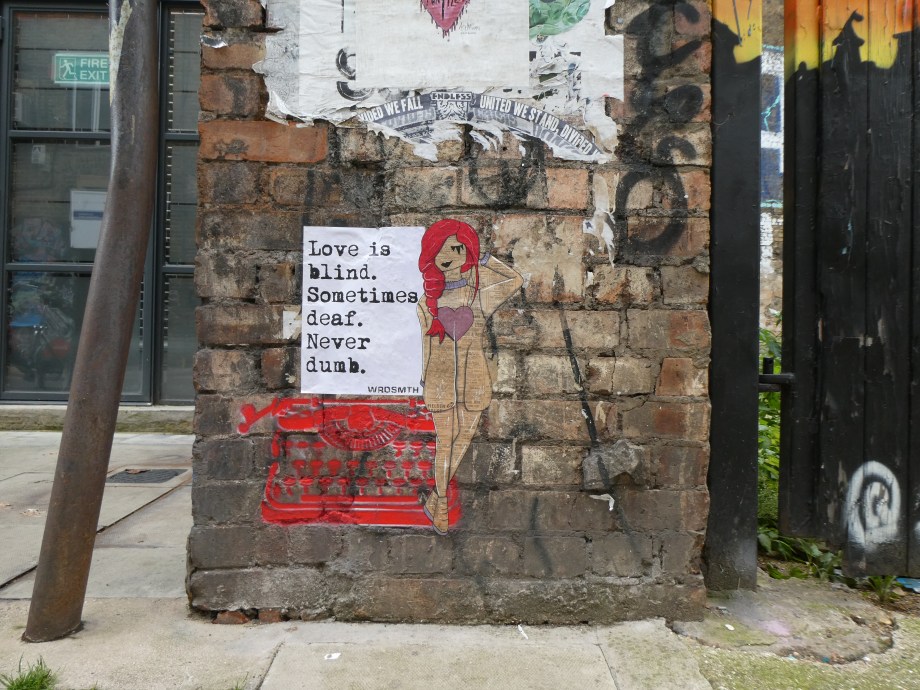 FIRE
EXIT
ENDLESS
WE FALL
UNITED WE STAND, DIVIDED
Love is
blind.
Sometimes
deaf.
Never
dumb.
WRDSMTH